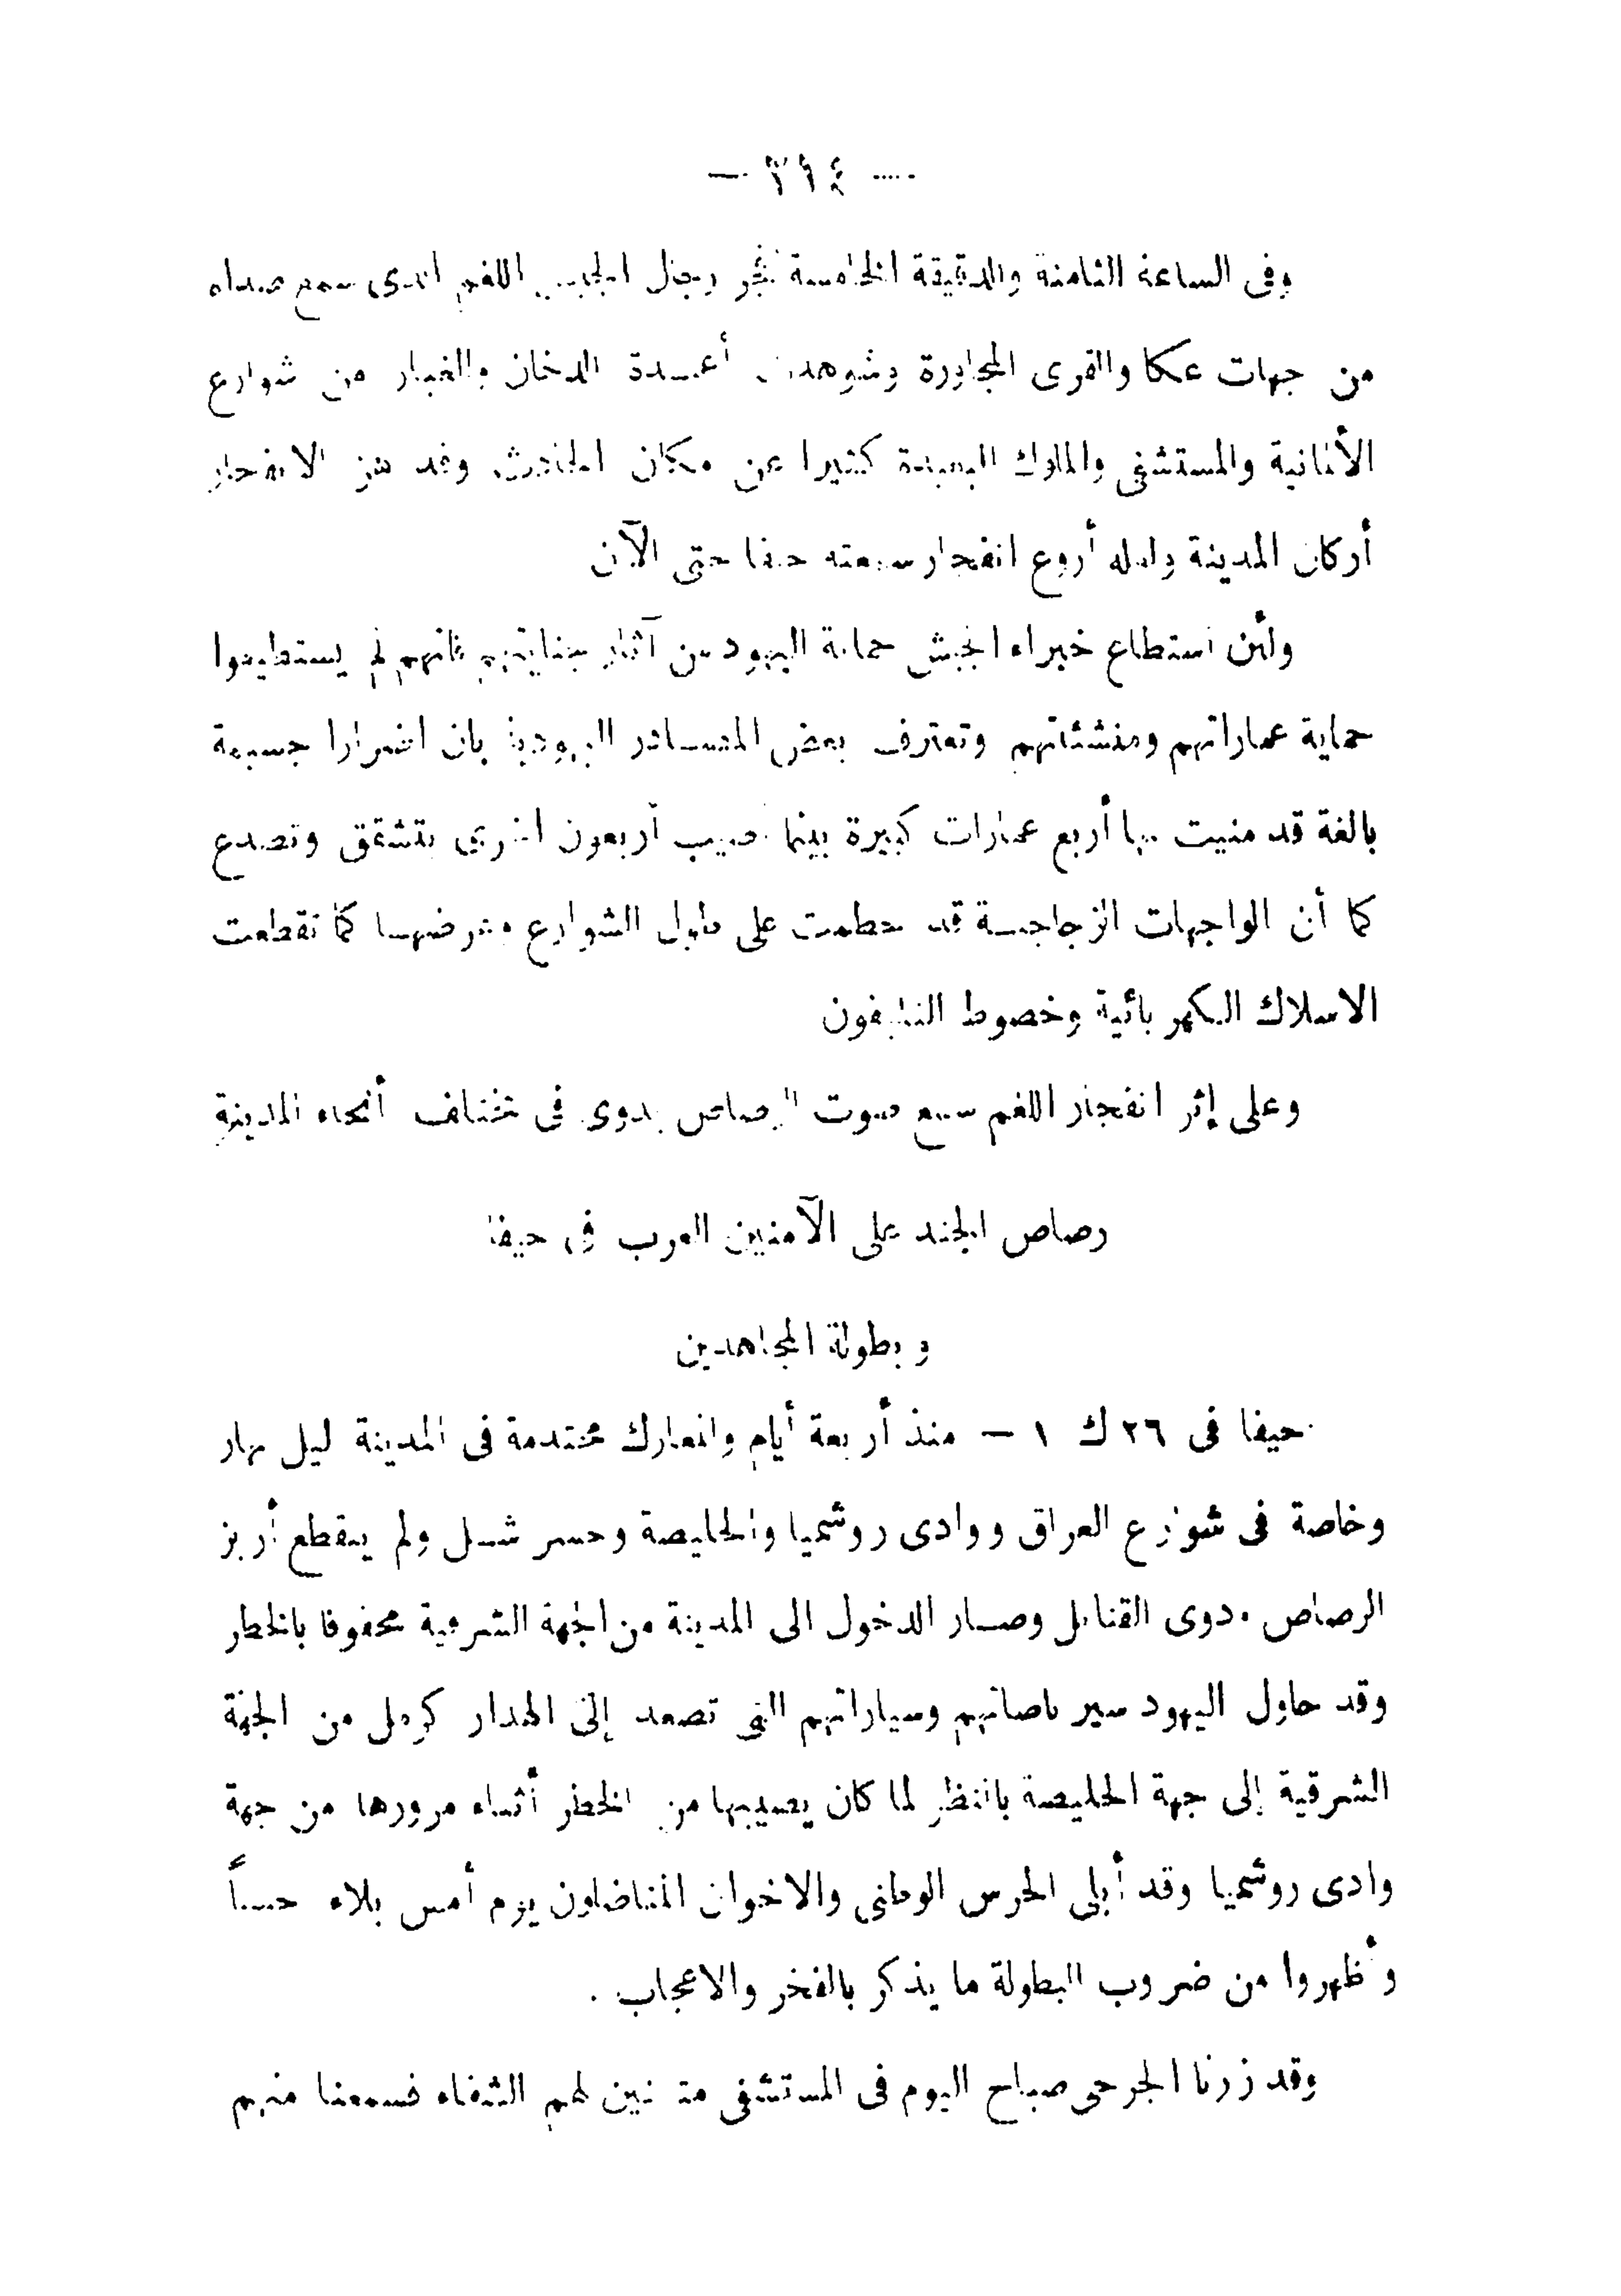 — ٣١٤ —
وفى الساعة الثامنة والدقيقة الخامسة فجر رجال الجيش اللغم الذى سمع صداه
من جهات عكا والقرى المجاورة وشوهدت أعمدة الدخان والغبار من شوارع
الألمانية والمستشفى والملوك البعيدة كثيرا عن مكان الحادث وقد هز الانفجار
أركان المدينة ولعله أروع انفجار سمعته حيفا حتى الآن
ولئن استطاع خبراء الجيش حماية اليهود من آثار جنايتهم فانهم لم يستطيعوا
حماية عماراتهم ومنشئاتهم وتعترف بعض المصادر اليهودية بان اضرارا جسيمة
بالغة قد منيت بها أربع عمارات كبيرة بينما أصيب أربعون اخرى بتشقق وتصدع
كما أن الواجهات الزجاجية قد حطمت على طول الشوارع وعرضهــا كما تقطعت
الاسلاك الكهربائية وخصوط التليفون
وعلى إثر انفجار اللغم سمع صوت الرصاص يدوى فى مختلف أنحاء المدينة
رصاص الجند على الآمنين العرب فى حيفا
وبطولة المجاهدين
حيفا فى ٢٦ ك ١ — منذ أربعة أيام والمعارك محتدمة فى المدينة ليل نهار
وخاصة فى شوارع العراق ووادى روشميا والحليصة وجسر شــل ولم ينقطع أزيز
الرصاص ودوى القنابل وصــار الدخول الى المدينة من الجهة الشرقية محفوفا بالخطر
وقد حاول اليهود سير باصاتهم وسياراتهم التى تصعد إلى الهدار كرمل من الجهة
الشرقية إلى جهة الحليصة بالنظر لما كان يصيبها من الخطر أثناء مرورها من جهة
وادى روشميا وقد أبلى الحرس الوطنى والاخوان المناضلون يوم أمس بلاء حسناً
وأظهروا من ضروب البطولة ما يذكر بالفخر والاعجاب .
وقد زرنا الجرحى صباح اليوم فى المستشفى متمنين لهم الشفاء فسمعنا منهم